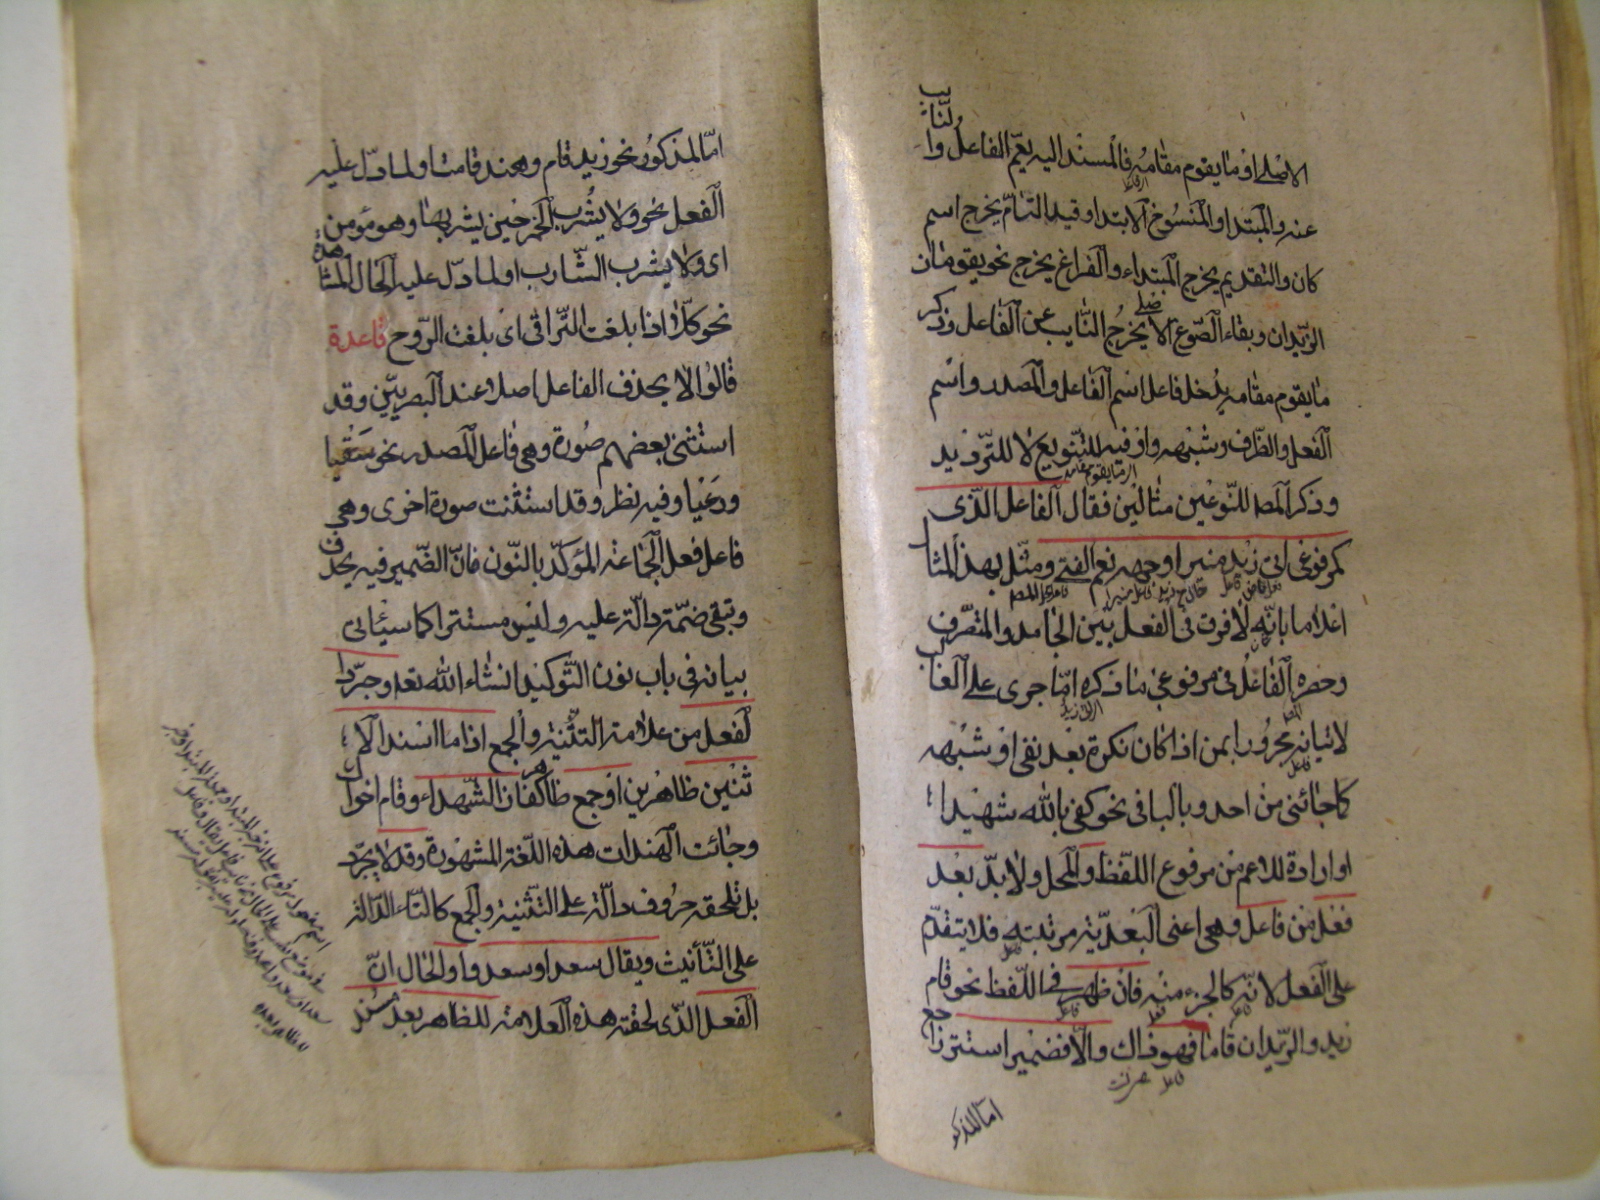 الاصلى او ما يقوم مقامه فالمسند اليه يعم الفاعل والنائب
عنه والمبتدا والمنسوخ الابتدا وقيد التام يخرج اسم
كان والتقديم يخرج المبتداء والفراغ يخرج نحو يقومان
الزيدان وبقاء الصوغ الاصلى يخرج النايب عن الفاعل وذكر
ما يقوم مقامه يدخل فاعل اسم الفاعل والمصدر واسم
الفعل والظرف وشبهه واو فيه للتنويع لا للترديد
وذكر المص للنوعين مثالين فقال الفاعل الذى
كمرفوعى اتى زيد منيرا وجهه نعم الفتى ومثل بهذا المثال
اعلاما بانه لا فرق فى الفعل بين الجامد والمتصرف
وحصره الفاعل فى مرفوعى ما ذكره اما جرى على الغالب
لاتيانه مجرورا بمن اذا كان نكرة بعد نفى او شبهه
كما جائنى من احد وبالباء فى نحو كفى بالله شهيدا
او ارادة للاعم من مرفوع اللفظ والمحل ولا بد بعد
فعل من فاعل وهى اعنى البعدية مرتبته فلا يتقدم
على الفعل لانه كالجزء منه فان ظهر فى اللفظ نحو قام
زيد والزيدان قاما فهو ذاك والا فضمير استتر راجع
اما للمذكو
اما لمذكور نحو زيد قام وهند قامت او لما دل عليه
الفعل نحو ولا يشرب الخمر حين يشربها وهو مؤمن
اى ولا يشرب الشارب او لما دل عليه الحال المشاهدة
نحو كلا اذا بلغت التراقى اى بلغت الروح قاعدة
قالوا لا يحذف الفاعل اصلا عند البصريين وقد
استثنى بعضهم صورة وهى فاعل المصدر نحو سقيا
ورعيا وفيه نظر وقد استثنت صورة اخرى وهى
فاعل فعل الجماعة المؤكد بالنون فان الضمير فيه يحذف
وتبقى ضمة دالة عليه وليس مستترا كما سيئاتى
بيانه فى باب نون التوكيد انشاء الله تعه وجرد ا
لفعل من علامة التثنية والجمع اذا ما اسند الا
ثنين ظاهرين او جمع ظاهر كفاز الشهداء وقام اخواك
وجائت الهندات هذه اللغة المشهورة وقد لا يجرد
بل تلحقه حروف دالة على التثنية والجمع كالتاء الدالة
على التأنيث ويقال سعدا وسعدوا والحال ان
الفعل الذى لحقته هذه العلامة للظاهر بعد مسند